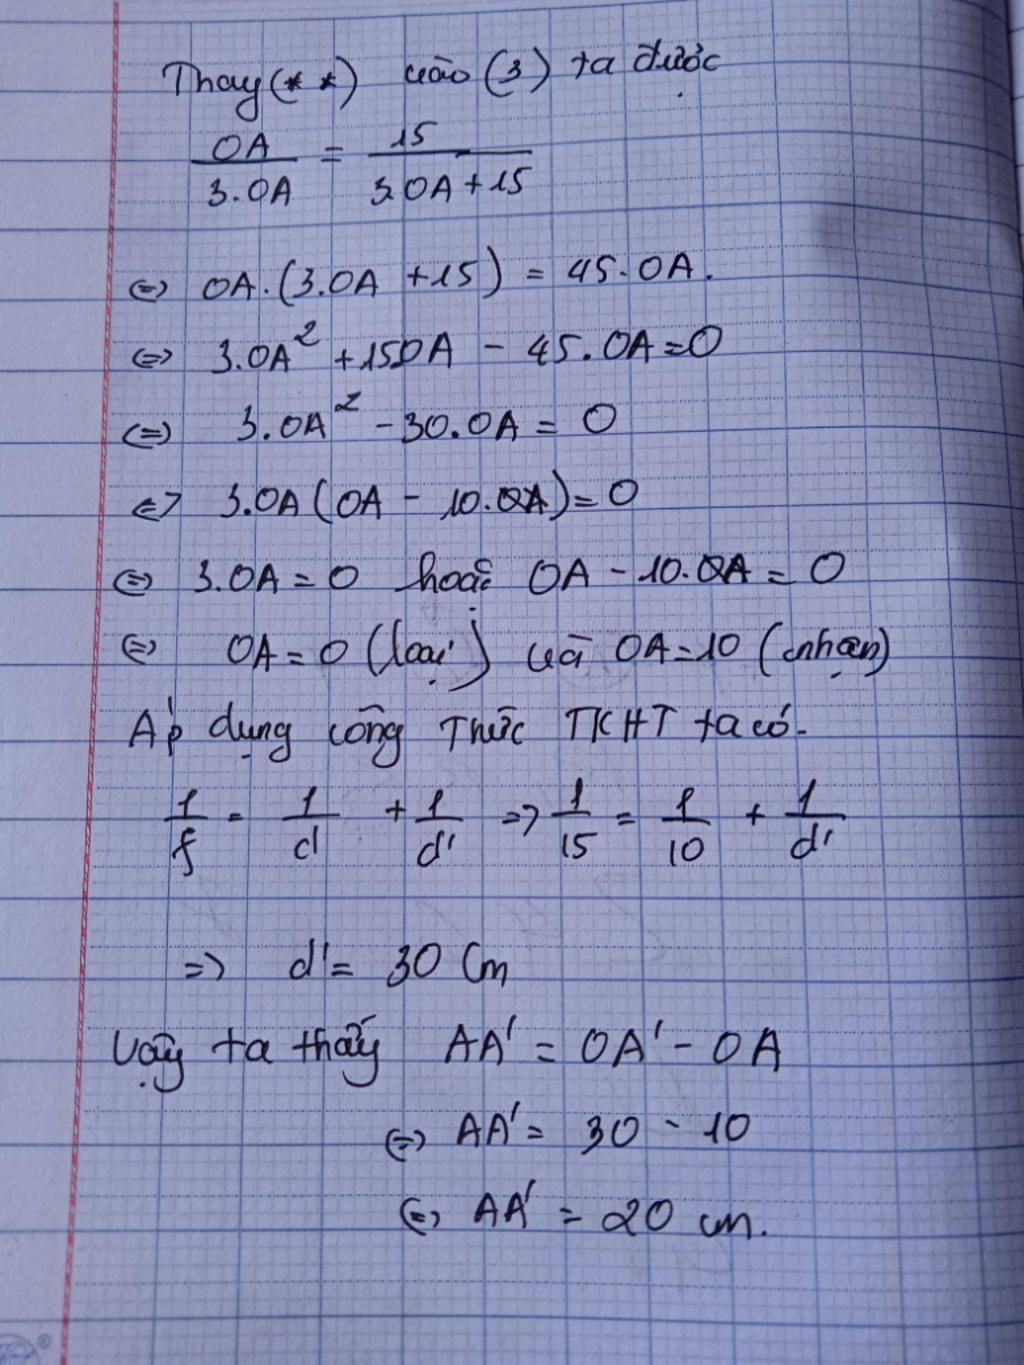 Thay (**) vào (3) ta được
OA/3.OA = 15/3.OA+15
<=> OA.(3.OA +15) = 45.OA.
<=> 3.OA² +15OA - 45.OA=0
<=> 3.OA² - 30.OA = 0
<=> 3.OA(OA - 10.OA)=0
<=> 3.OA = 0 hoặc OA - 10.OA = 0
<=> OA = 0 (loại) và OA=10 (nhận)
Áp dụng công Thức TKHT ta có.
1/f = 1/d + 1/d' => 1/15 = 1/10 + 1/d'
=> d' = 30 Cm
Vậy ta thấy AA' = OA' - OA
<=> AA' = 30 - 10
<=> AA' = 20 cm.